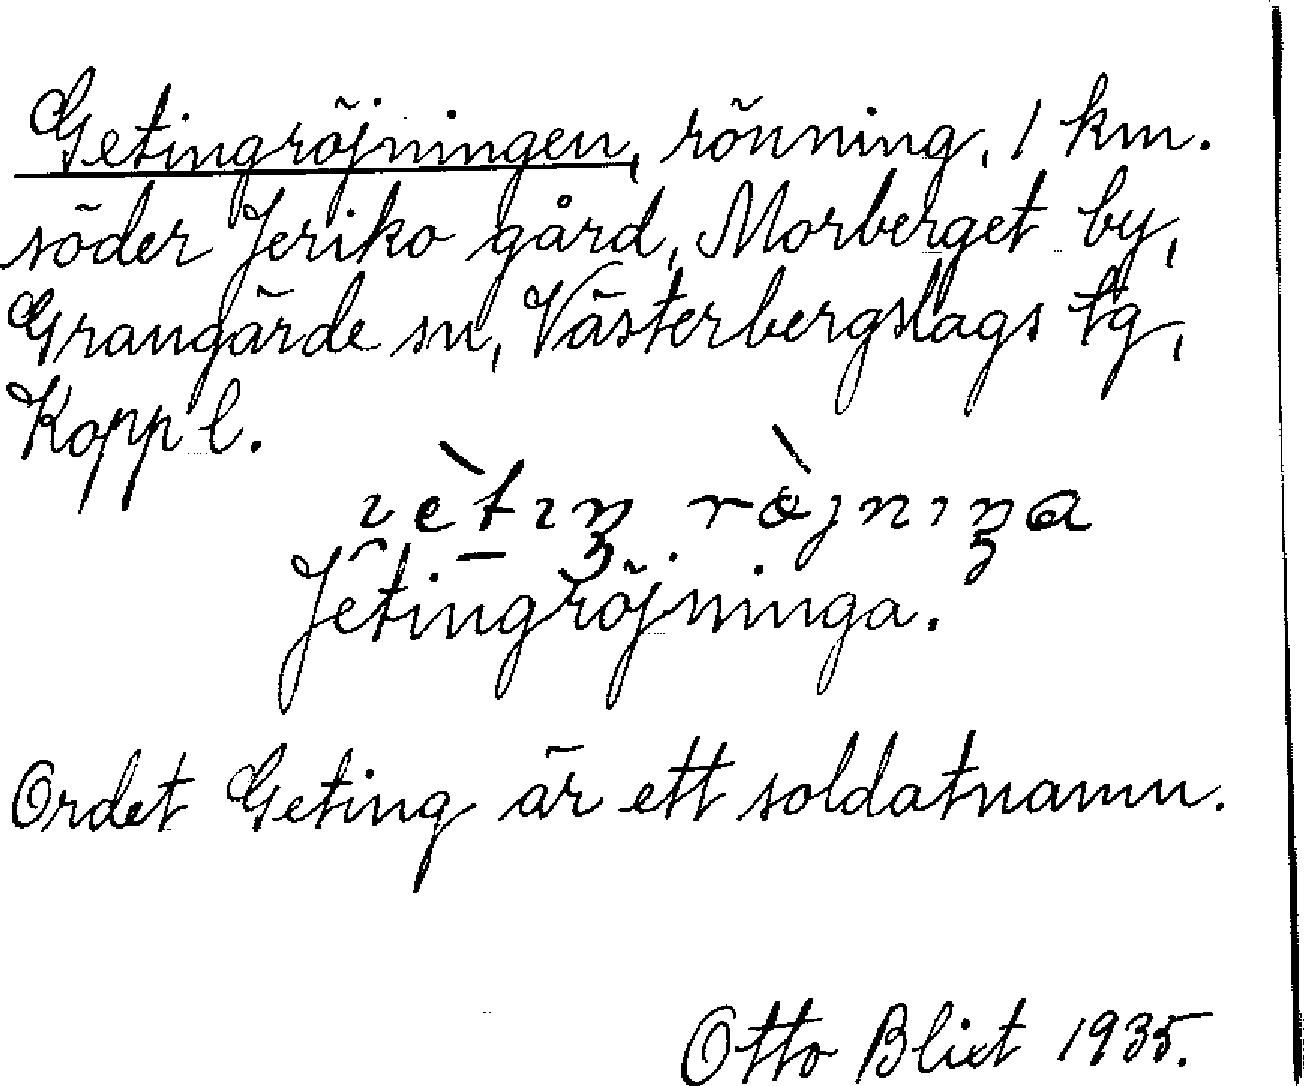 Getingröjningen, rönning, 1 km.
söder Jeriko gård, Morberget by,
Grangärde sn, Västerbergslags tg,
Kopp l.
Jetingröjninga.
Ordet Geting är ett soldatnamn.
Otto Blixt 1935.